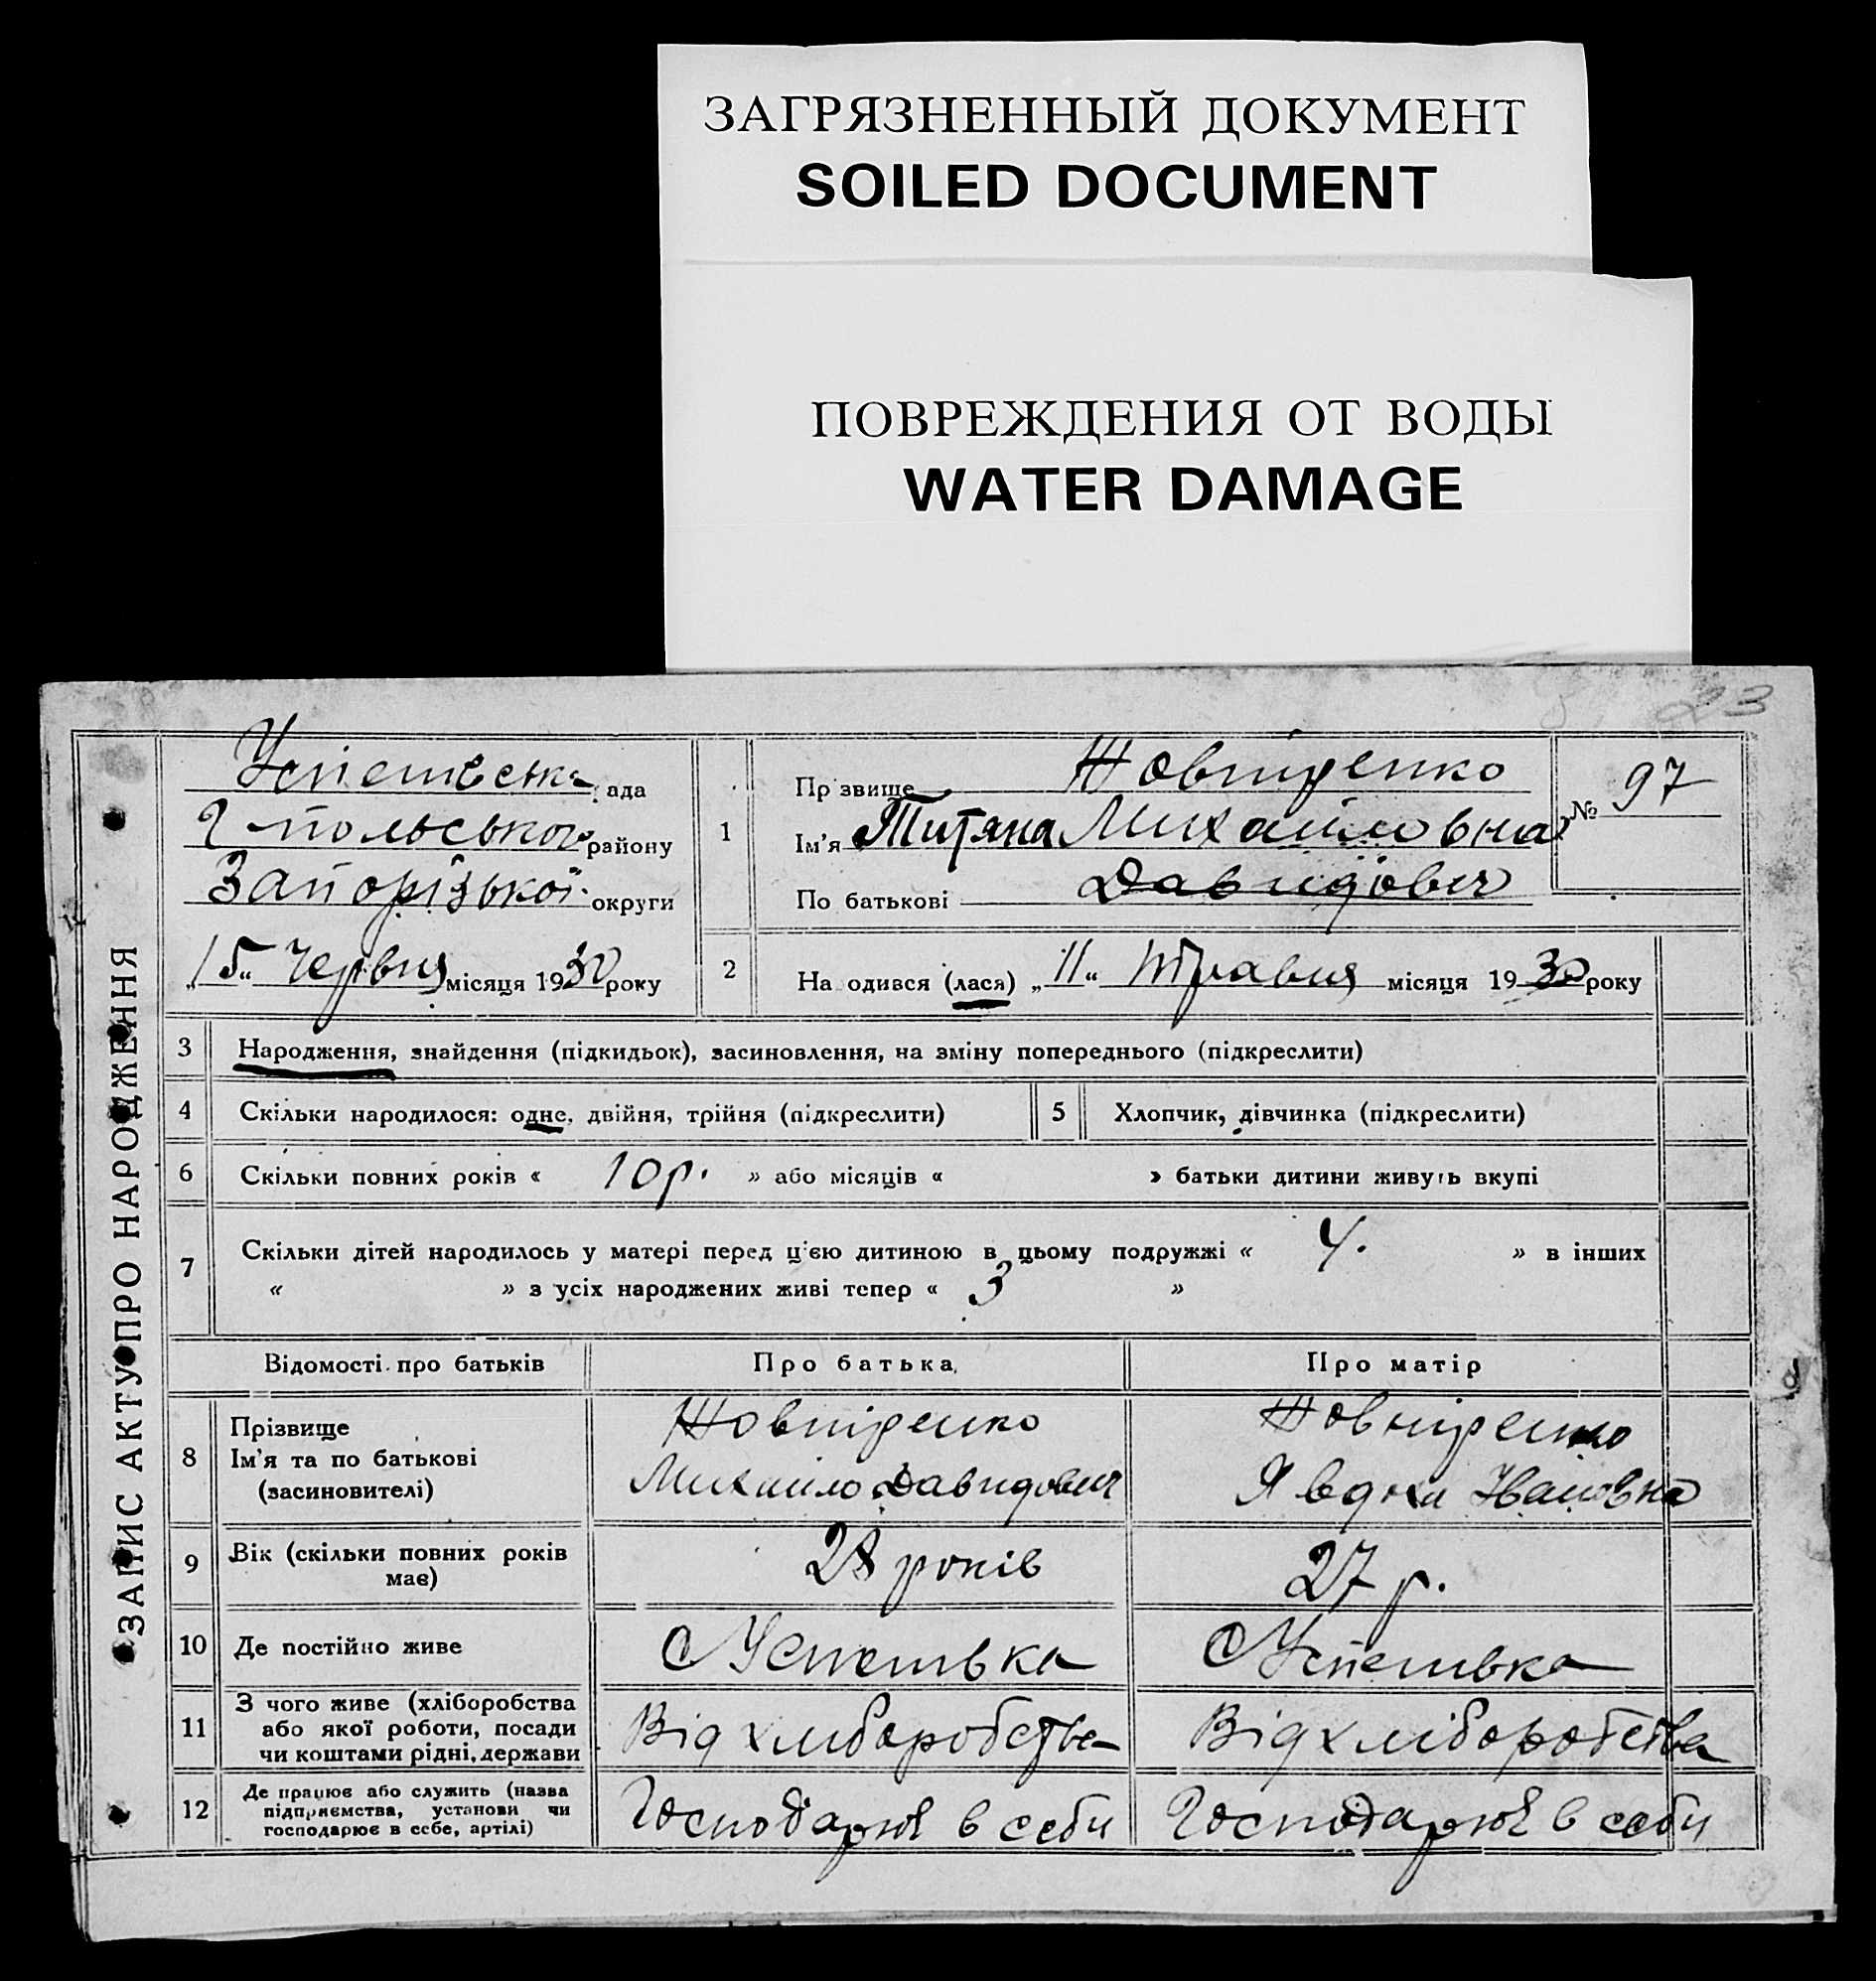 ЗАГРЯЗНЕННЫЙ ДОКУМЕНТ
SOILED DOCUMENT
ПОВРЕЖДЕНИЯ ОТ ВОДЫ
WATER DAMAGE
23
ЗАПИС АКТУ ПРО НАРОДЖЕННЯ
ада
Г польського району
Запорізької округи
„15“ Червня місяця 1930 року
1
Пр звище Жовніренко
Ім'я Титяна Михайловна
По батькові Давидович
№ 97
2
На одився (лася) „11“ Травня місяця 1930 року
3 Народження, знайдення (підкидьок), засиновлення, на зміну попереднього (підкреслити)
4 Скільки народилося: одне, двійня, трійня (підкреслити) 5 Хлопчик, дівчинка (підкреслити)
6 Скільки повних років « 10 р. » або місяців « » батьки дитини живуть вкупі
7 Скільки дітей народилось у матері перед ц'єю дитиною в цьому подружжі « 4. » в інших
« » з усіх народжених живі тепер « 3 »
Відомості про батьків Про батька Про матір
8 Прізвище
Ім'я та по батькові
(засиновителі)
Жовніренко
Михайло Давидович
Жовніренко
Явдоха Івановна
9 Вік (скільки повних років
має)
28 років
27 р.
10 Де постійно живе
С Успенівка
С Успенівка
11 З чого живе (хліборобства
або якої роботи, посади
чи коштами рідні, держави
Від хліборобства
Від хліборобства
12 Де працює або служить (назва
підприємства, установи чи
господарює в себе, артілі)
Господарює в себи
Господарює в себи